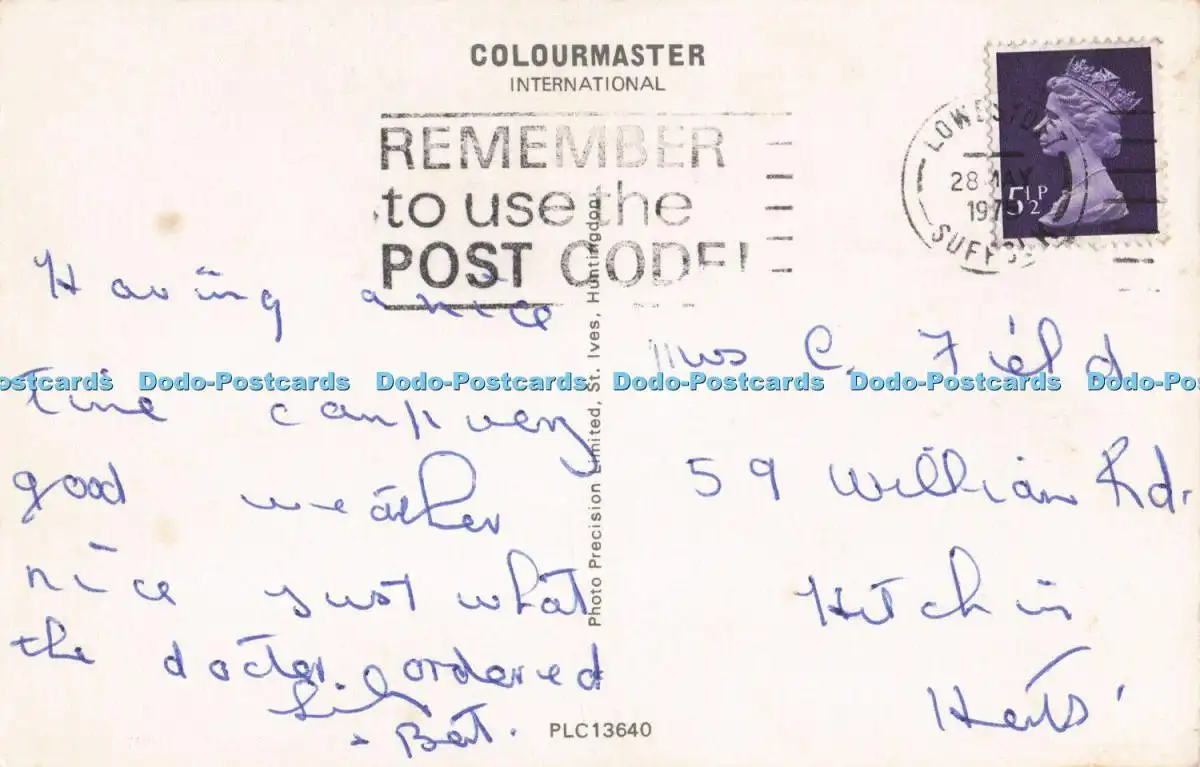 COLOURMASTER
INTERNATIONAL
REMEMBER
to use the
POST CODE!
LOWESTOFT
28 MAY
197
SUFFOLK
5½P
Having a nice
time camp very
good weather
nice just what
the docter ordered
+ Bert.
Mrs C. Field
59 William Rd.
Hitchin
Herts'
Photo Precision Limited, St. Ives, Huntingdon
PLC13640
ostcards Dodo-Postcards Dodo-Postcards Dodo-Postcards Dodo-Postcards Dodo-Po